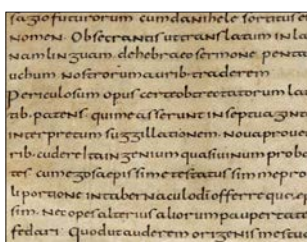 sagio futurorum cum danihele sortitus e
nomen. Obsecrantis ut translatum in la
nam linguam. de hebraeo sermone penta
uchum nostrorum aurib. traderem
Periculosum opus certe obtrectatorum la
tib. patens. qui me asserunt in septuagint
interpretum suggillationem. Nova prove
rib. cudere ita ingenium quasi vinum probe
tes cum ego saepissime testatus sim me pro
li portione in tabernaculo di offerre que
sim. Nec opes alterius aliorum paupertate
fedari. Quod ut auderem origenis me stud